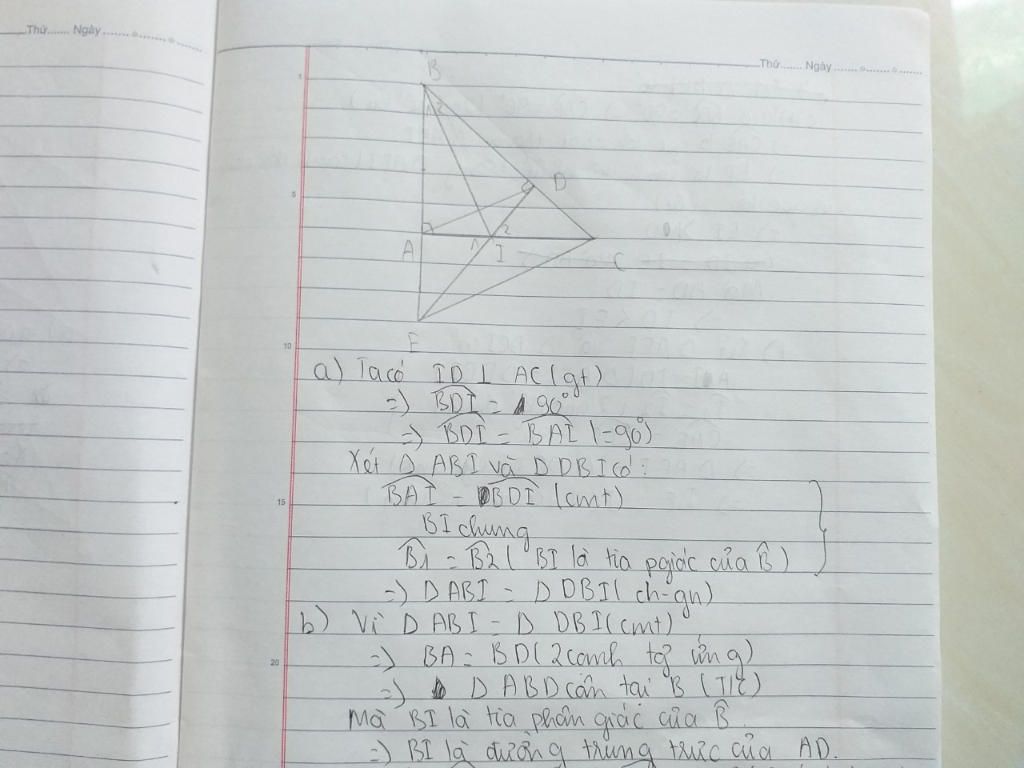 Thứ....... Ngày
Thứ....... Ngày
B
1
2
5
D
A
1
I
2
C
E
10
a) Ta có ID ⊥ AC (gt)
=> BDI = 90°
=> BDI = BAI (=90°)
Xét Δ ABI và Δ DBI có:
15
BAI = BDI (cmt)
BI chung
B1 = B2 ( BI là tia pgiác của B )
=> Δ ABI = Δ DBI ( ch-gn)
b) Vì Δ ABI = Δ DBI (cmt)
=> BA = BD (2 cạnh tg ứng)
20
=> Δ ABD cân tại B (T/c)
Mà BI là tia phân giác của B
=> BI là đường trung trực của AD.